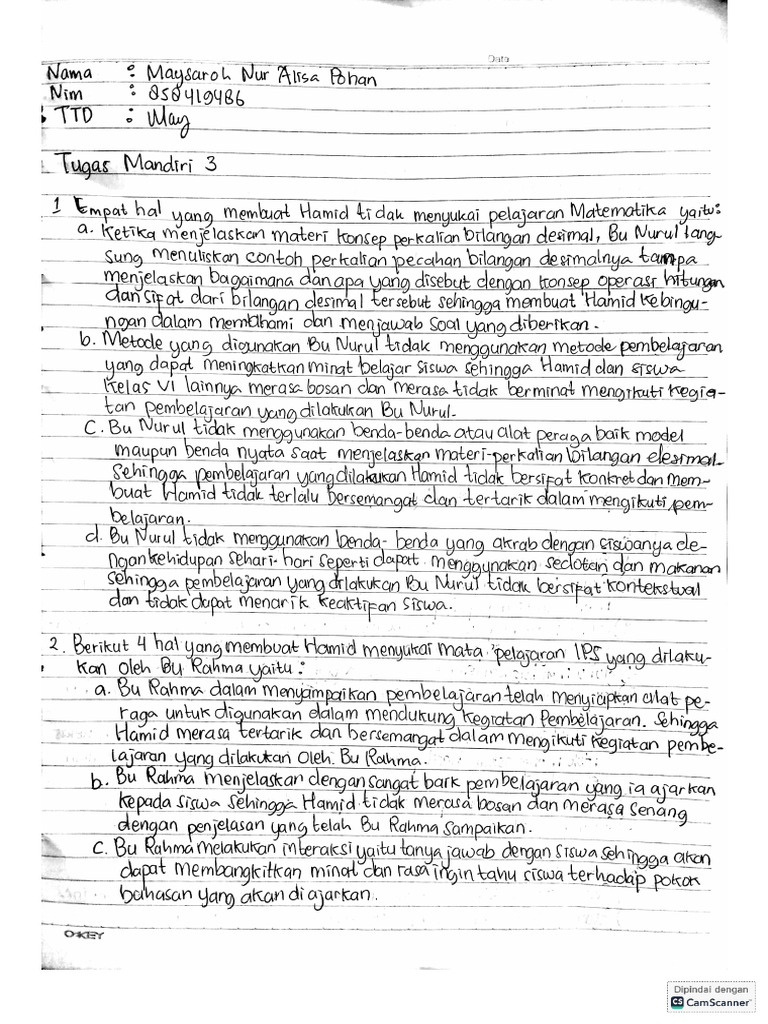 Date
Nama : Maysaroh Nur Alisa Pohan
Nim : 858419486
TTD : May
Tugas Mandiri 3
1 Empat hal yang membuat Hamid tidak menyukai pelajaran Matematika yaitu:
a. Ketika menjelaskan materi konsep perkalian bilangan desimal, Bu Nurul lang-
sung menuliskan contoh perkalian pecahan bilangan desimalnya tampa
menjelaskan bagaimana dan apa yang disebut dengan konsep operasi hitungan
dan sifat dari bilangan desimal tersebut sehingga membuat Hamid kebingu-
ngan dalam memahami dan menjawab soal yang diberikan.
b. Metode yang digunakan Bu Nurul tidak menggunakan metode pembelajaran
yang dapat meningkatkan minat belajar siswa sehingga Hamid dan siswa
kelas VI lainnya merasa bosan dan merasa tidak berminat mengikuti kegia-
tan pembelajaran yang dilakukan Bu Nurul.
C. Bu Nurul tidak menggunakan benda-benda atau alat peraga baik model
maupun benda nyata saat menjelaskan materi perkalian bilangan desimal.
Sehingga pembelajaran yang dilakukan Hamid tidak bersifat konkret dan mem-
buat Hamid tidak terlalu bersemangat dan tertarik dalam mengikuti pem-
belajaran.
d. Bu Nurul tidak menggunakan benda-benda yang akrab dengan siswanya de-
ngan kehidupan sehari-hari seperti dapat menggunakan sedotan dan makanan
sehingga pembelajaran yang dilakukan Bu Nurul tidak bersifat kontekstual
dan tidak dapat menarik keaktifan siswa.
2. Berikut 4 hal yang membuat Hamid menyukai mata pelajaran IPS yang dilaku-
kan oleh Bu Rahma yaitu:
a. Bu Rahma dalam menyampaikan pembelajaran telah menyiapkan alat pe-
raga untuk digunakan dalam mendukung kegiatan Pembelajaran. Sehingga
Hamid merasa tertarik dan bersemangat dalam mengikuti kegiatan pembe-
lajaran yang dilakukan oleh Bu Rahma.
b. Bu Rahma menjelaskan dengan sangat baik pembelajaran yang ia ajarkan
kepada siswa sehingga Hamid tidak merasa bosan dan merasa senang
dengan penjelasan yang telah Bu Rahma sampaikan.
C. Bu Rahma melakukan interaksi yaitu tanya jawab dengan siswa sehingga akan
dapat membangkitkan minat dan rasa ingin tahu siswa terhadap pokok
bahasan yang akan di ajarkan.
OKEY
Dipindai dengan
CS CamScanner